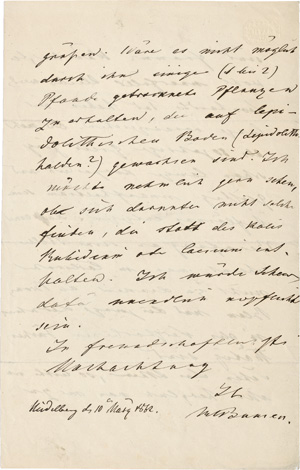 grüßen. Wäre es nicht möglich
durch ihn einige (1 bis 2)
Pfund getrocknete Pflanzen
zu erhalten, die auf lepi-
dolithischen Boden (Lepidolith
halden?) gewachsen sind. Ich
möchte nehmlich gern sehen,
ob sich darunter nicht solche
finden, die statt des Kalis
Rubidium oder Caesium ent-
halten. Ich würde Ihnen
dafür unendlich verpflichtet
sein.
In freundschaftlichster
Hochachtung
Ihr
RWBunsen.
Heidelberg d. 10 März 1862.